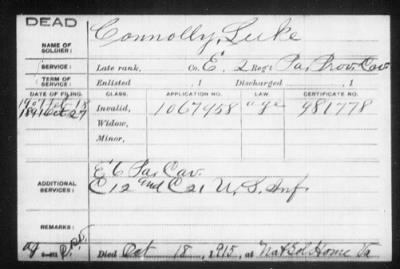 DEAD
NAME OF SOLDIER: Connolly, Luke
SERVICE: Late rank, Co. E, 2 Reg't Pa. Prov. Cav.
TERM OF SERVICE: Enlisted , 1 Discharged , 1
DATE OF FILING. CLASS. APPLICATION NO. LAW. CERTIFICATE NO.
Invalid, 1067458 age 981778
Widow,
Minor,
E 6 Pa. Cav.
ADDITIONAL SERVICES: C 12 and C 21 U.S. Inf.
REMARKS:
Died Oct 18, 1915, at Nat Sol Home Va